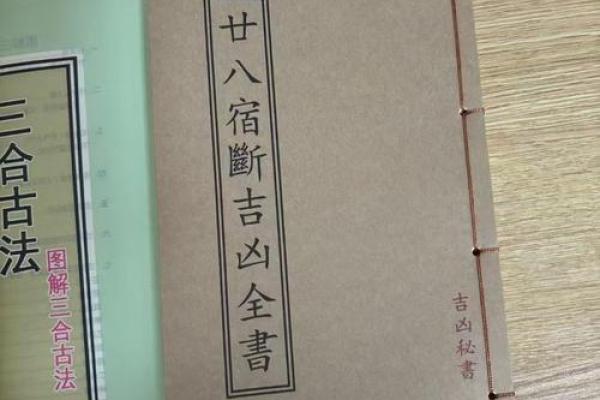 廿八宿斷吉凶全書
吉凶秘書
三合古法
图解三合古法